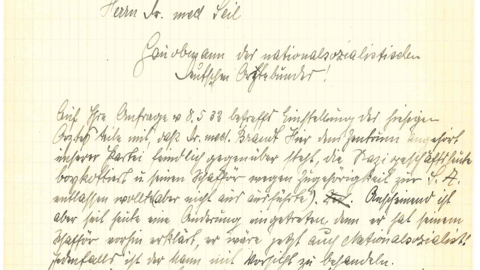 Herrn Dr. med Seil
Gauobmann des nationalsozialistischen
deutschen Ärztebundes!
Auf Ihre Anfrage v 8.5 33 betreffs Einstellung des hiesigen
Arztes teile mit, daß Dr. med. Brandt hier dem Zentrum angehört
unserer Partei feindlich gegenüber steht, die Nazigeschäftsleute
boykottiert u seinen Schafför wegen Zugehörigkeit zur S.A.
entlassen wollte (aber nicht ausführte). Anscheinend ist
aber seit heute eine Änderung eingetreten denn er hat seinem
Schafför vorhin erklärt, er wäre jetzt auch Nationalsozialist.
Jedenfalls ist der Mann mit Vorsicht zu behandeln.